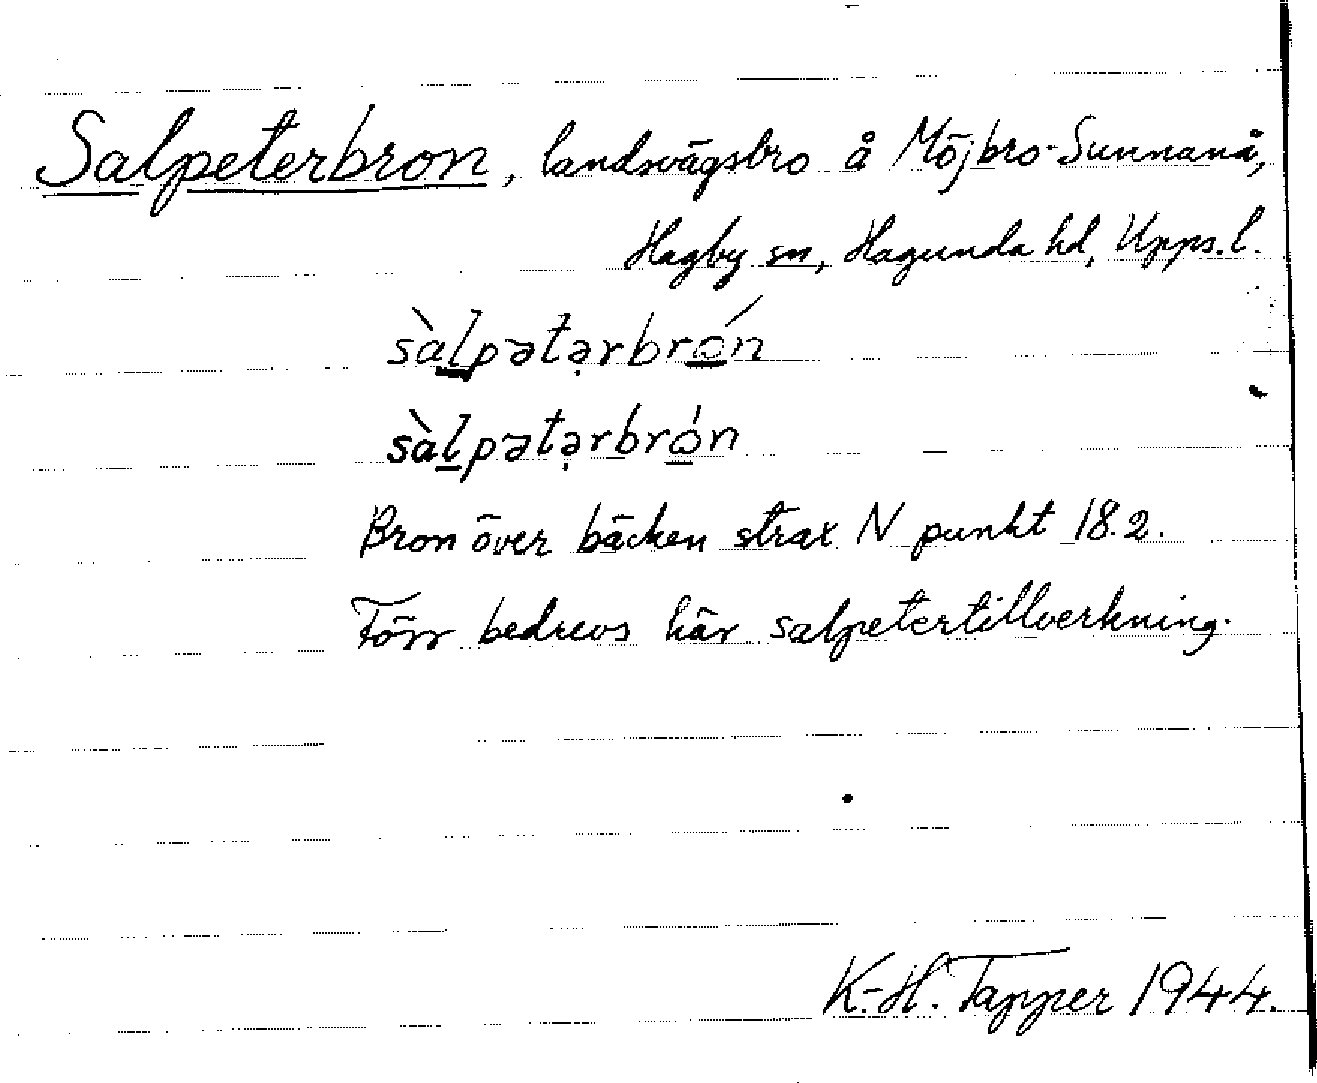 Salpeterbron, landsvägsbro å Möjbro-Sunnanå,
Hagby sn, Hagunda hd, Upps. l.
sàlpətərbrón
sàlpətərbrón
Bron över bäcken strax N punkt 18.2.
Förr bedrevs här salpetertillverkning.
K.-H. Tapper 1944.